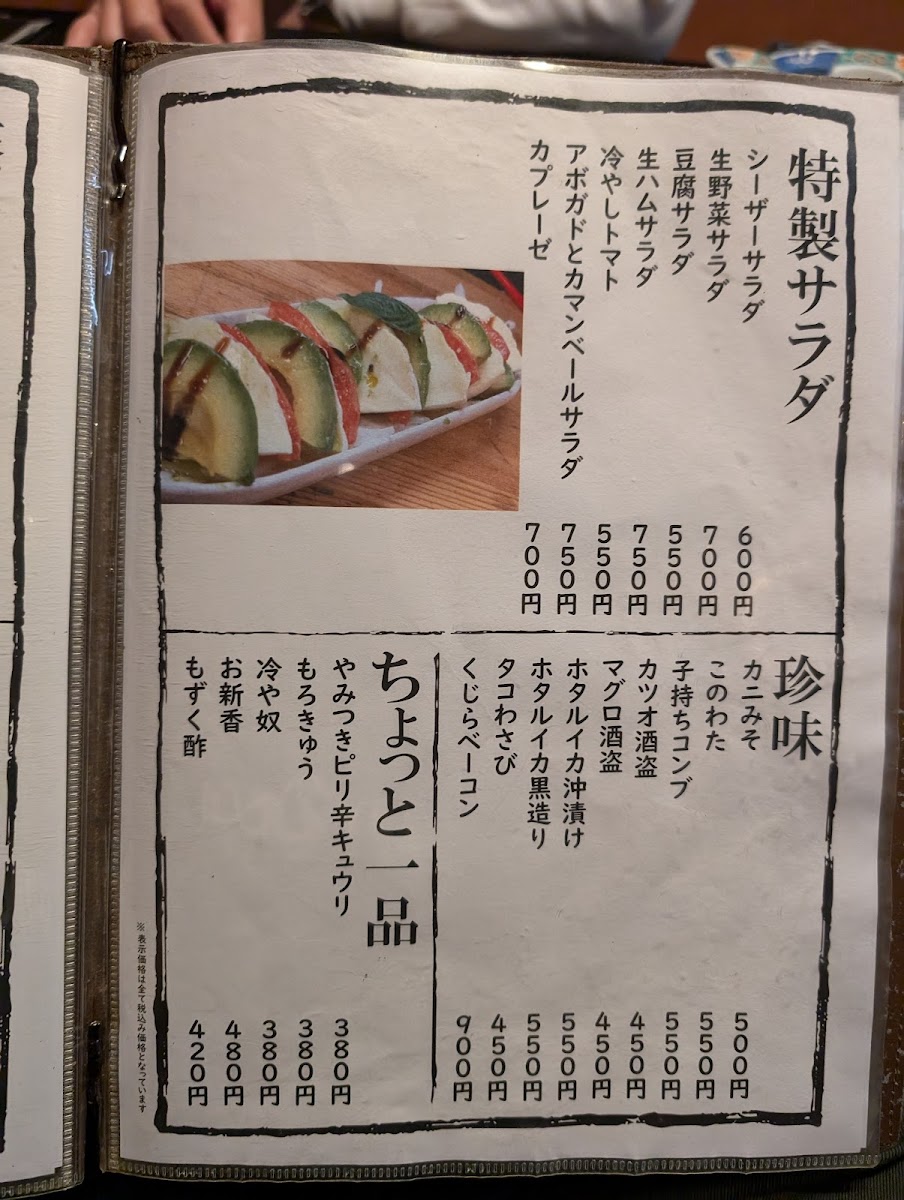 特製サラダ
シーザーサラダ 600円
生野菜サラダ 700円
豆腐サラダ 550円
生ハムサラダ 750円
冷やしトマト 550円
アボガドとカマンベールサラダ 750円
カプレーゼ 700円
珍味
カニみそ 500円
このわた 550円
子持ちコンブ 550円
カツオ酒盗 450円
マグロ酒盗 450円
ホタルイカ沖漬け 550円
ホタルイカ黒造り 550円
タコわさび 450円
くじらベーコン 900円
ちょっと一品
やみつきピリ辛キュウリ 380円
もろきゅう 380円
冷や奴 380円
お新香 480円
もずく酢 420円
※表示価格は全て税込み価格となっています